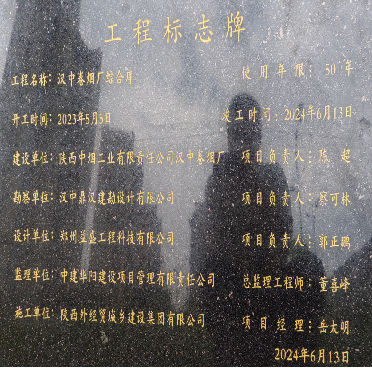 工程标志牌
工程名称：汉中卷烟厂综合库 使用年限：50年
开工时间：2023年5月5日 竣工时间：2024年6月13日
建设单位：陕西中烟工业有限责任公司汉中卷烟厂 项目负责人：陈超
勘察单位：汉中鼎汉建勘设计有限公司 项目负责人：蔡可林
设计单位：郑州益盛工程科技有限公司 项目负责人：郭正鹏
监理单位：中建华阳建设项目管理有限责任公司 总监理工程师：董喜峰
施工单位：陕西外经贸城乡建设集团有限公司 项目经理：岳大明
2024年6月13日